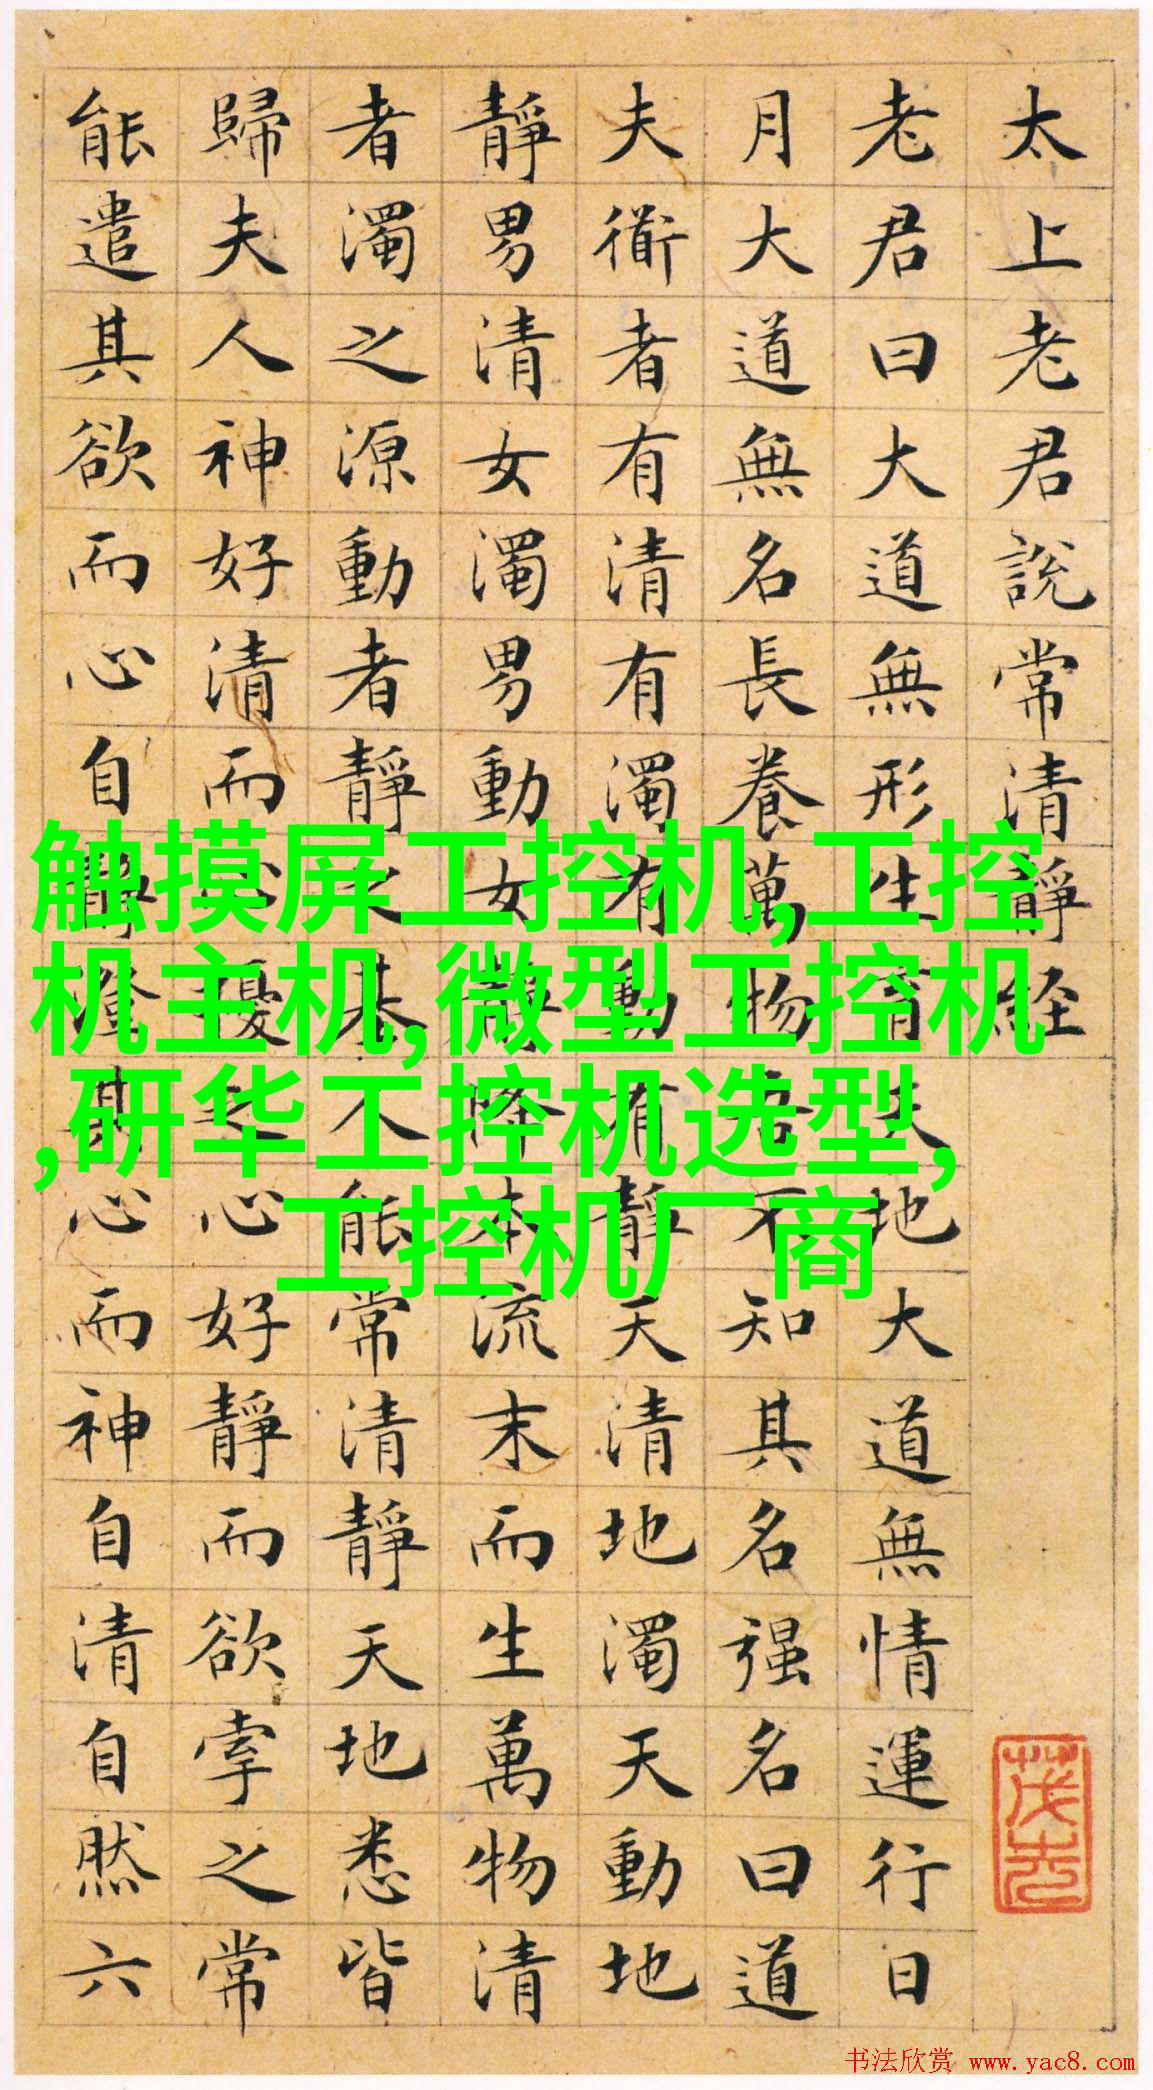 太上老君說常清靜経
老君曰大道無形生育天地大道無情運行日
月大道無名長養萬物吾不知其名强名曰道
夫衜者有清有濁有動有靜天清地濁天動地
靜男清女濁男動女靜降本流末而生萬物清
者濁之源動者靜之基人能常清靜天地悉皆
歸夫人神好清而心擾之心好靜而欲牽之常
能遣其欲而心自靜澄其心而神自清自然六
触摸屏工控机,工控
机主机,微型工控机
,研华工控机选型,
工控机厂商
书法欣赏 www.yac8.com